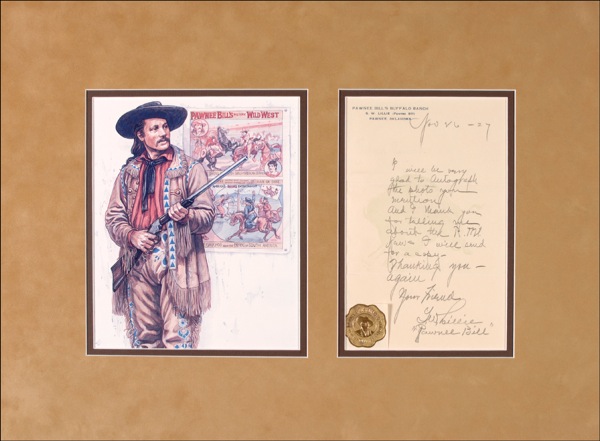 PAWNEE BILL'S WILD WEST
PAWNEE BILL'S BUFFALO RANCH
G. W. LILLIE (PAWNEE BILL)
PAWNEE, OKLAHOMA
Nov 26 - 27
I will be very
glad to Autograph
the photo you
mention
And I thank you
for telling me
about the
I will send
for a copy -
Thanking you -
again
Your Friend
GWLillie
"Pawnee Bill"